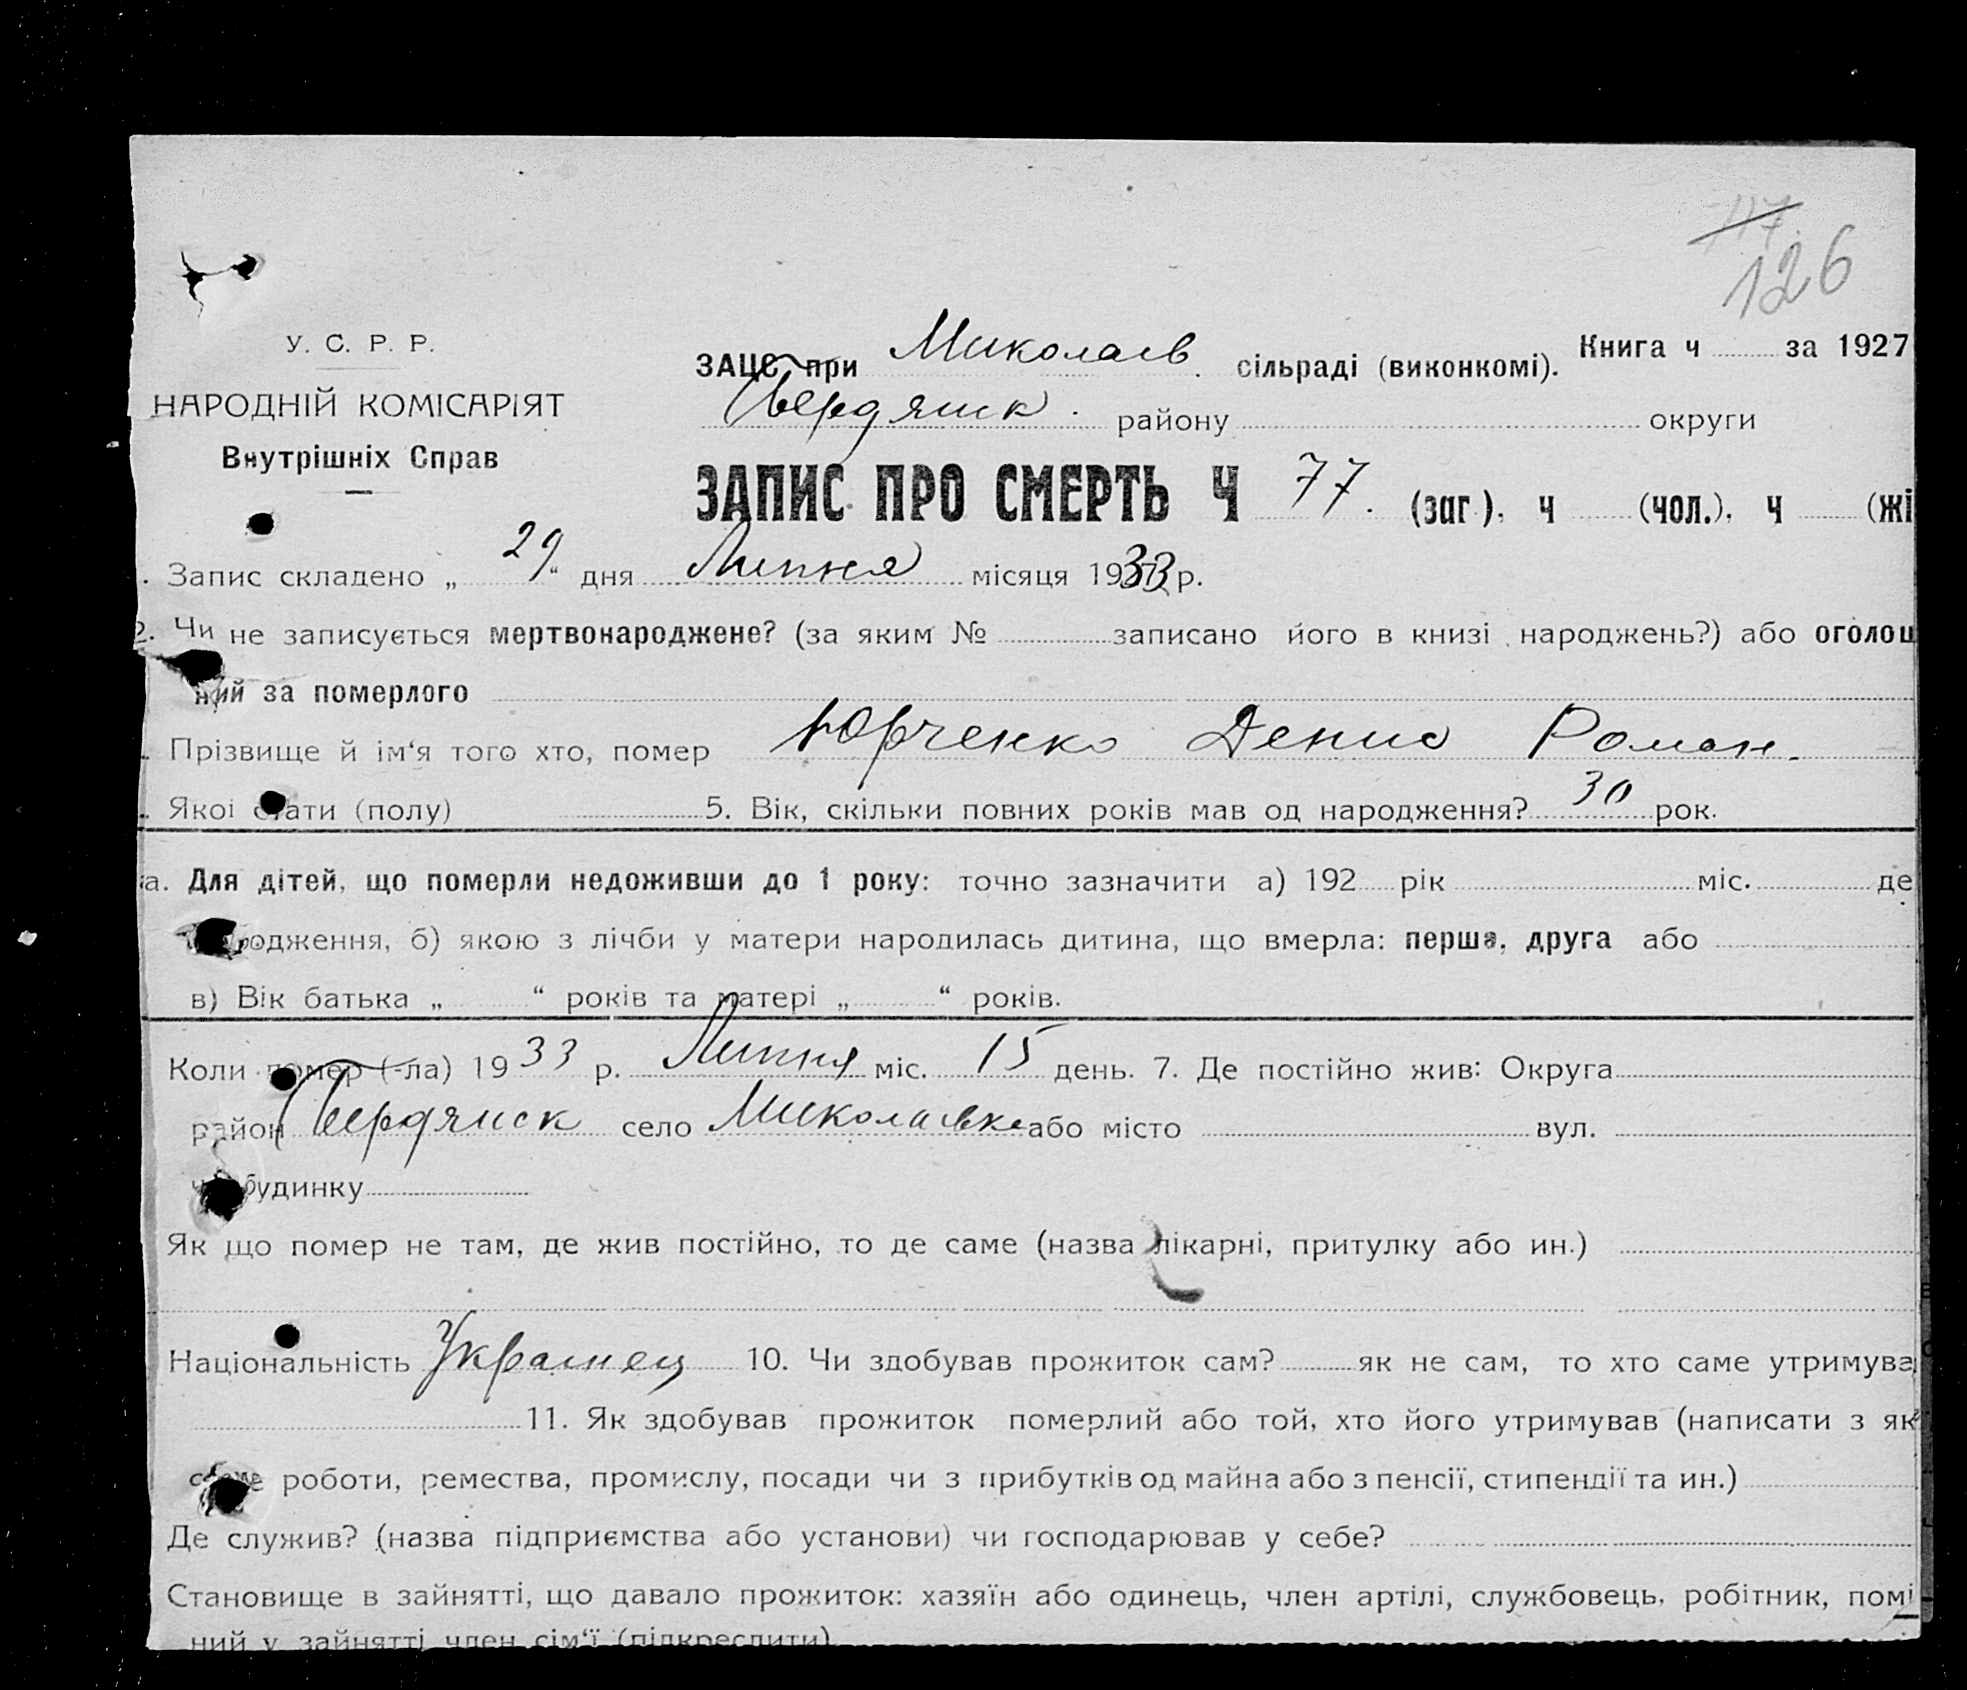 117.
126
У. С. Р. Р.
НАРОДНІЙ КОМІСАРІЯТ
Внутрішніх Справ
ЗАЦС при Миколаїв. сільраді (виконкомі). Книга ч за 1927
Бердянск. району округи
ЗАПИС ПРО СМЕРТЬ Ч 77. (заг.), ч (чол.), ч (жі
. Запис складено „ 29 “ дня Липня місяця 1933 р.
2. Чи не записується мертвонароджене? (за яким № записано його в книзі народжень?) або оголош
ний за померлого
. Прізвище й ім‘я того хто, помер Юрченко Денис Роман.
. Якої стати (полу) 5. Вік, скільки повних років мав од народження? 30 рок.
а. Для дітей, що померли недоживши до 1 року: точно зазначити а) 192 рік міс. де
родження, б) якою з лічби у матери народилась дитина, що вмерла: перша, друга або
в) Вік батька „ “ років та матері „ “ років.
Коли помер (-ла) 1933 р. Липня міс. 15 день. 7. Де постійно жив: Округа
район Бердянск село Миколаївка або місто вул.
ч. будинку
Як що помер не там, де жив постійно, то де саме (назва лікарні, притулку або ин.)
Національність Українец 10. Чи здобував прожиток сам? як не сам, то хто саме утримува
11. Як здобував прожиток померлий або той, хто його утримував (написати з як
саме роботи, ремества, промислу, посади чи з прибутків од майна або з пенсії, стипендії та ин.)
Де служив? (назва підприємства або установи) чи господарював у себе?
Становище в зайнятті, що давало прожиток: хазяїн або одинець, член артілі, службовець, робітник, помі
ний у зайнятті член сім‘ї (підкреслити)